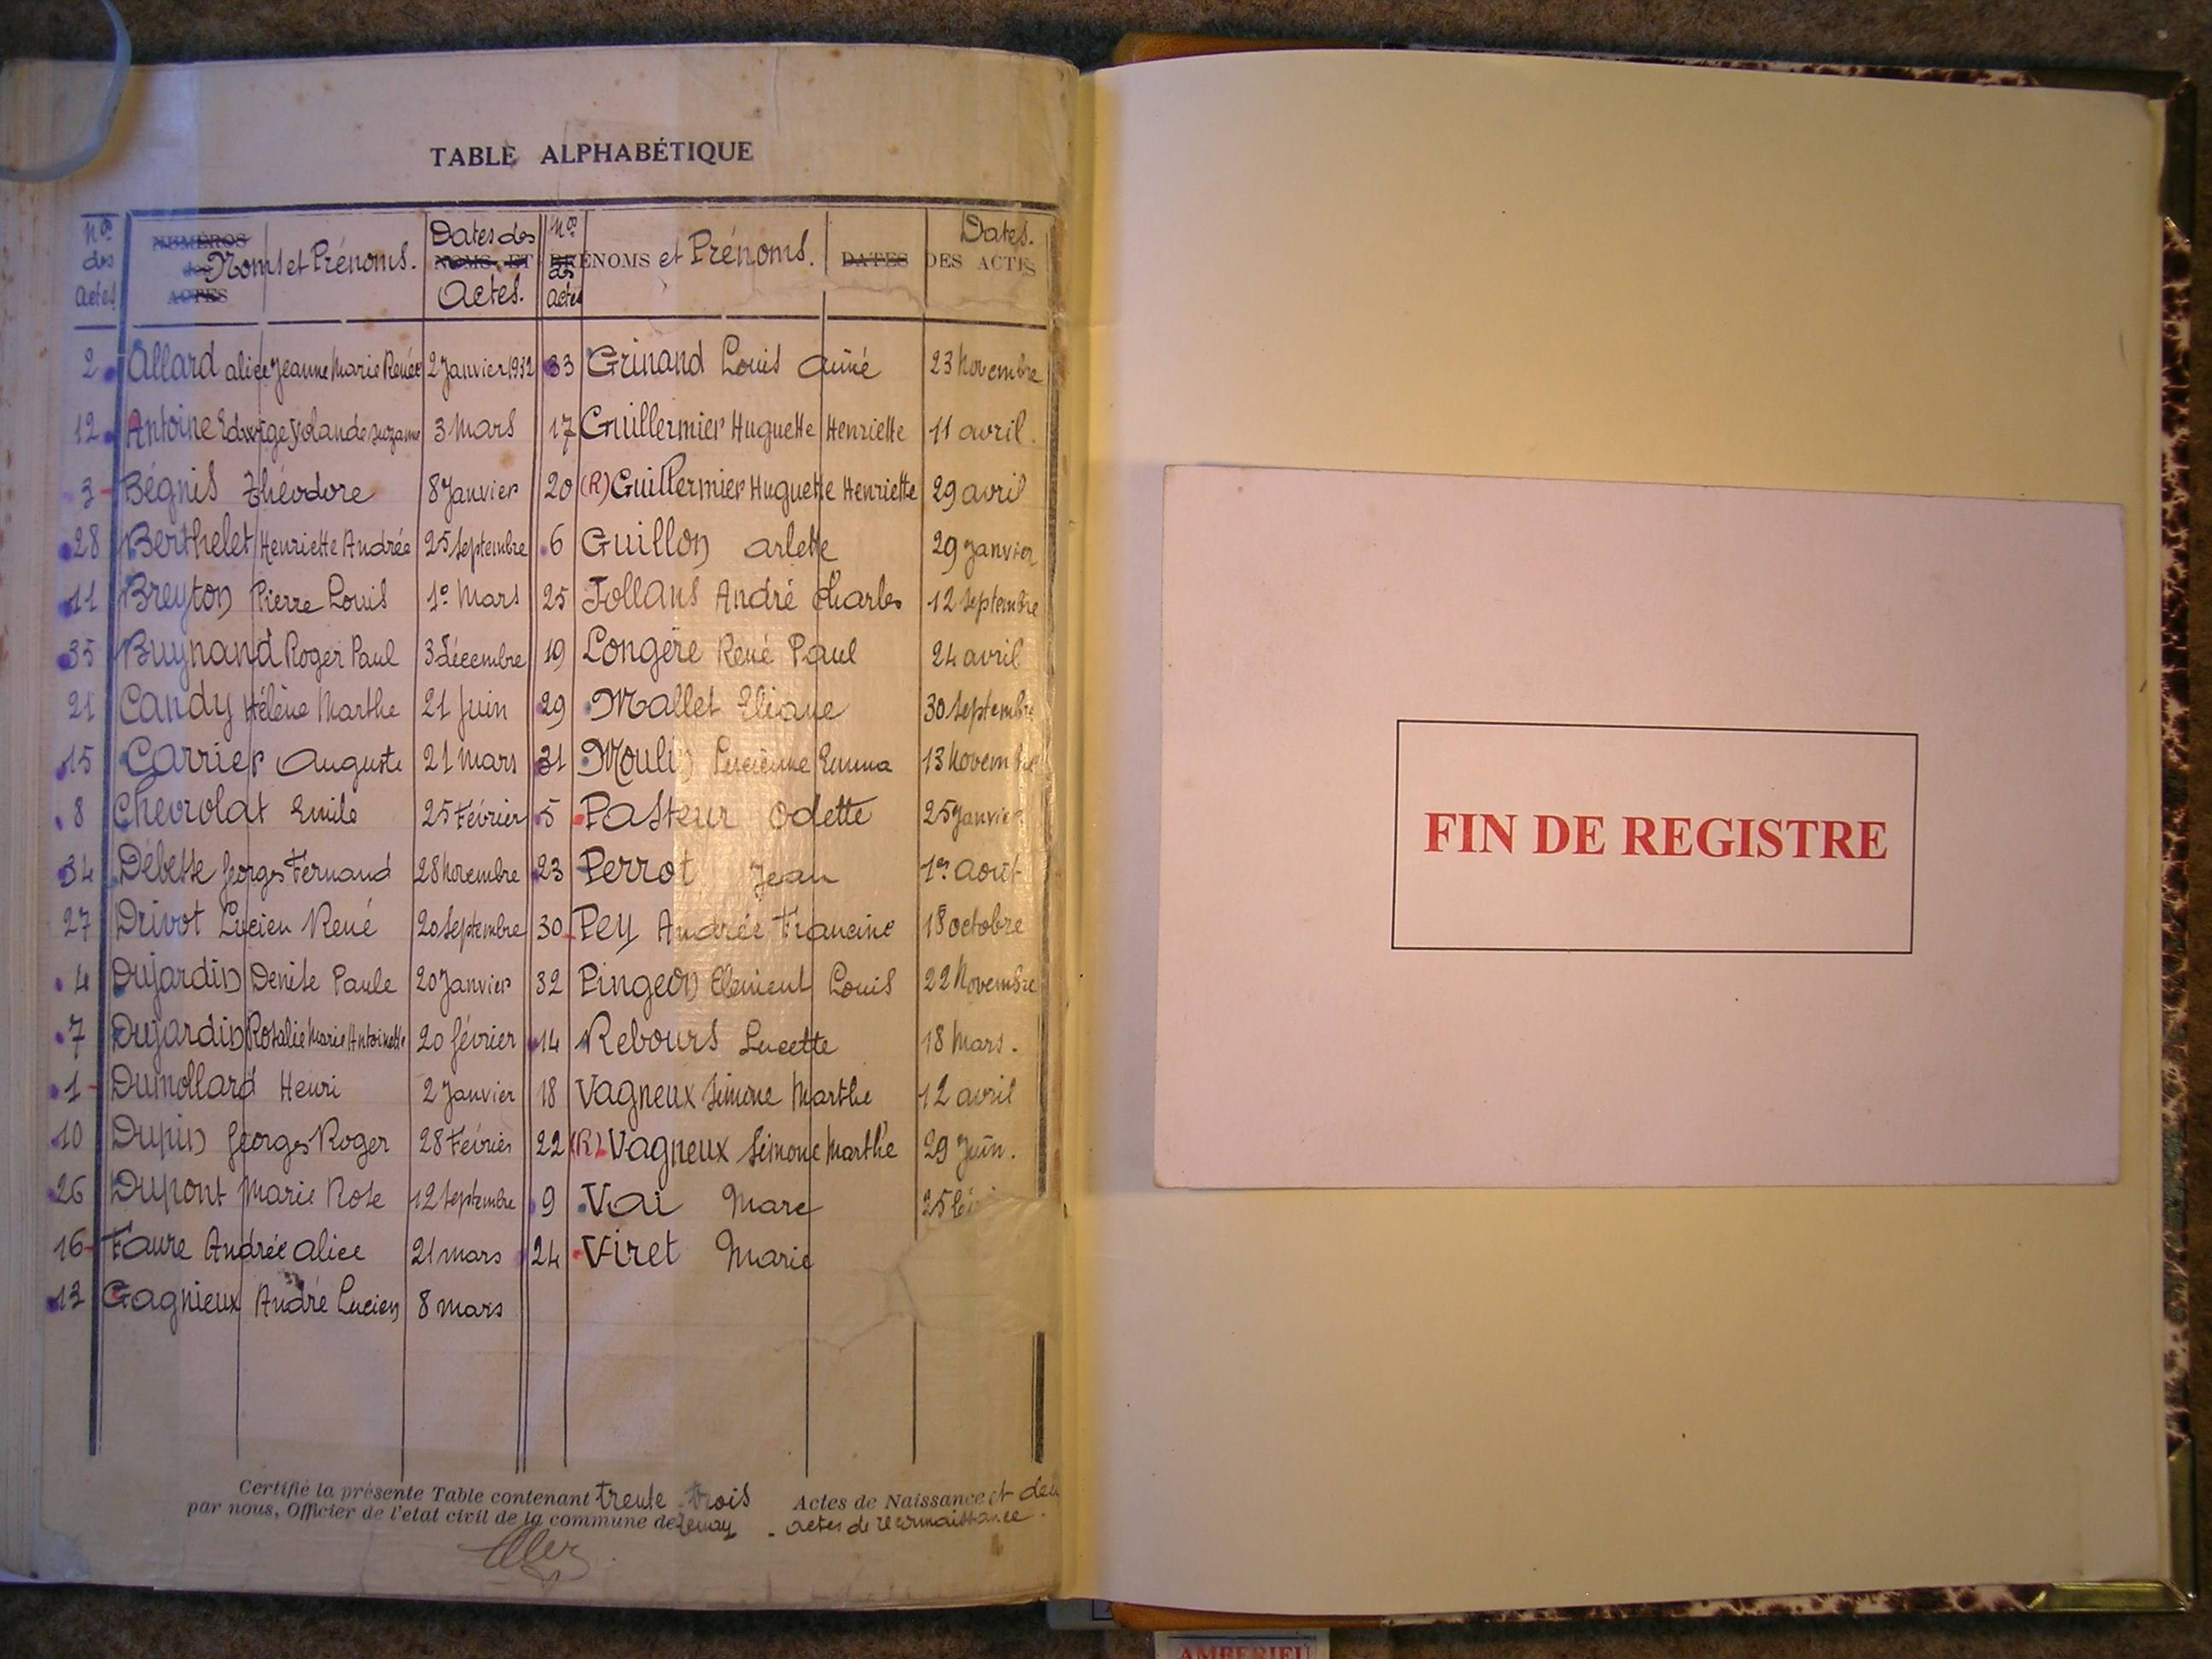 TABLE ALPHABÉTIQUE
Nos des Actes
NUMÉROS des ACTES
Noms et Prénoms.
Dates des NOMS ET Actes.
Nos des actes
PRÉNOMS et Prénoms.
DATES
Dates. DES ACTES
2 Allard alice Jeanne Marie Renée 2 Janvier 1932
12 Antoine Edwige Yolande Suzanne 3 Mars
3 Bégnis Théodore 8 Janvier
28 Berthelet Henriette Andrée 25 Septembre
11 Breyton Pierre Louis 1º Mars
35 Buynand Roger Paul 3 décembre
21 Candy Hélène Marthe 21 Juin
15 Carrier Auguste 21 Mars
8 Chevrolat Emile 25 Février
34 Débette Georges Fernand 28 Novembre
27 Drivot Lucien René 20 Septembre
4 Dujardin Denise Paule 20 Janvier
7 Dujardin Rosalie Marie Antoinette 20 février
1 Dumollard Henri 2 Janvier
10 Dupin Georges Roger 28 Février
26 Dupont Marie Rose 12 Septembre
16 Faure Andrée alice 21 mars
13 Gagnieux André Lucien 8 mars
33 Grinand Louis Aimé 23 Novembre
17 Guillermier Huguette Henriette 11 avril.
20 (R) Guillermier Huguette Henriette 29 avril
6 Guillon arlette 29 Janvier
25 Jollans André Charles 12 Septembre
19 Longère René Paul 24 avril
29 Mallet Eliane 30 Septembre
31 Moulin Lucienne Emma 13 Novembre
5 Pasteur Odette 25 Janvier
23 Perrot Jean 1er Août
30 Pey Andrée Francine 18 octobre
32 Pingeon Clement Louis 22 Novembre
14 Rebours Lucette 18 Mars.
18 Vagneux Simone Marthe 12 avril
22 (R) Vagneux Simone Marthe 29 Juin.
9 Vai Marc 25
24 Viret Marie
Certifié la présente Table contenant trente-trois Actes de Naissance et deux
par nous, Officier de l'etat civil de la commune de Tenay - actes de reconnaissance.
FIN DE REGISTRE
AMBERIEU